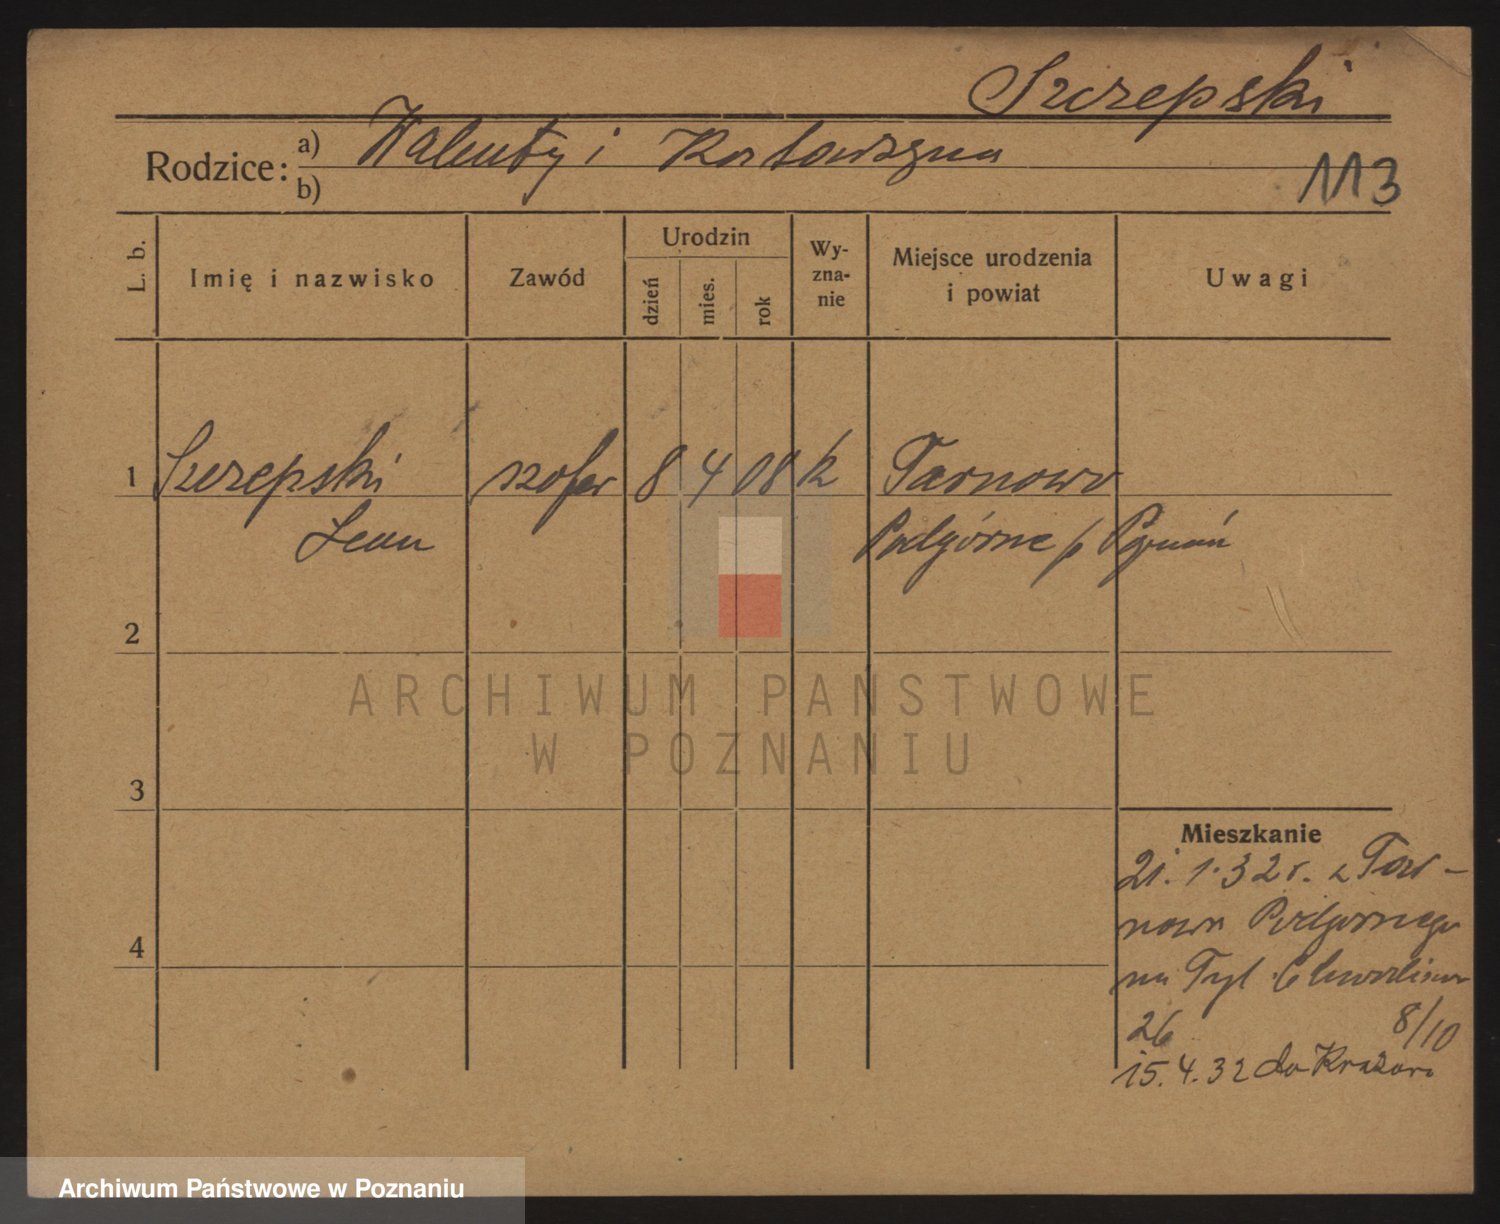 Szczepski
Rodzice: a) Walenty i Katarzyna
b)
113
L. b.
Imię i nazwisko
Zawód
Urodzin
dzień
mies.
rok
Wy-
zna-
nie
Miejsce urodzenia
i powiat
Uwagi
1 Szczepski szofer 8 4 08 k Tarnowo
Leon Podgórne p Poznań
2
ARCHIWUM PAŃSTWOWE
W POZNANIU
3
Mieszkanie
21.1.32 r. z Tar-
nowa Podgórnego
na Tyl
4
26 8/10
15.4.32 do
Archiwum Państwowe w Poznaniu